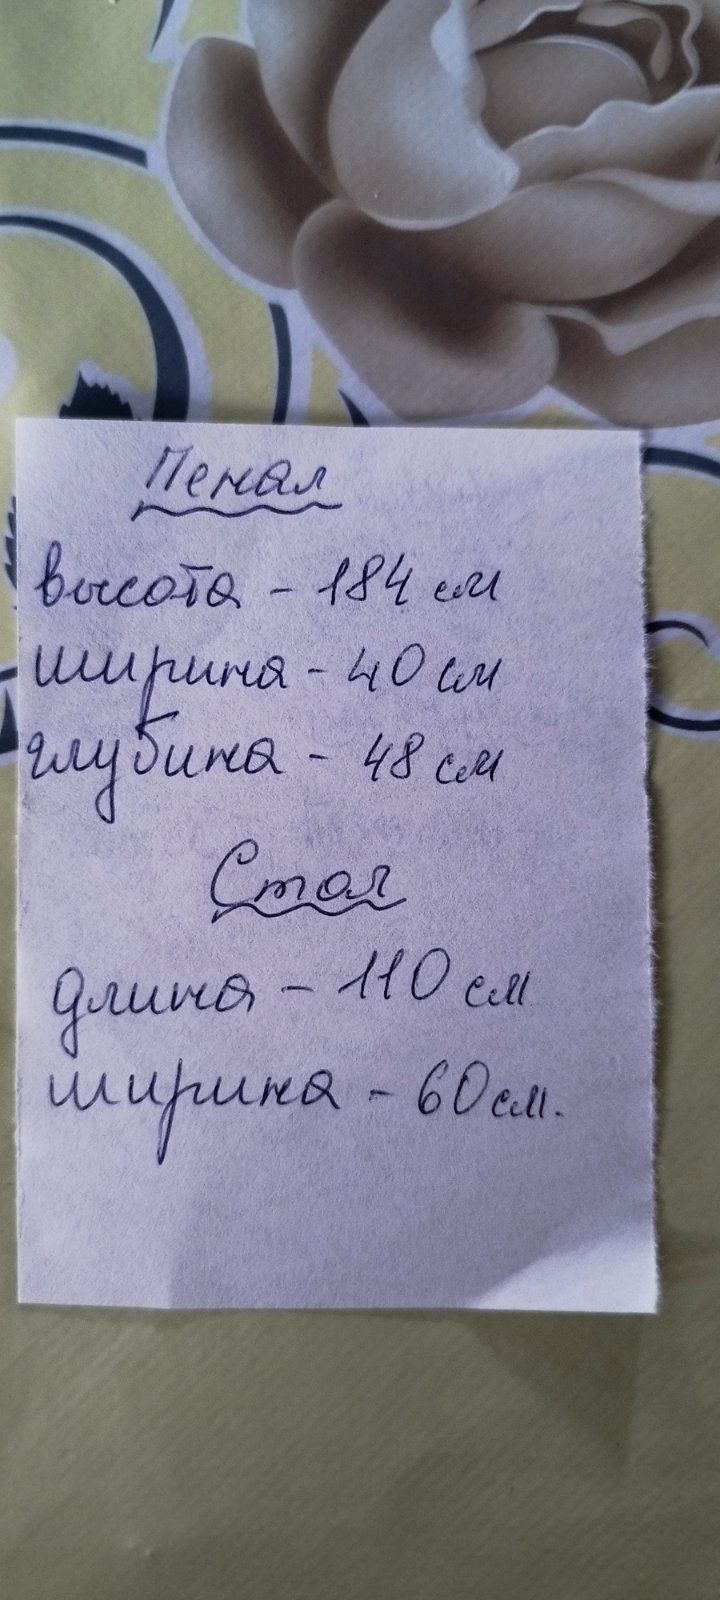 Пенал
высота - 184 см
ширина - 40 см
глубина - 48 см
Стол
длина - 110 см
ширина - 60 см.